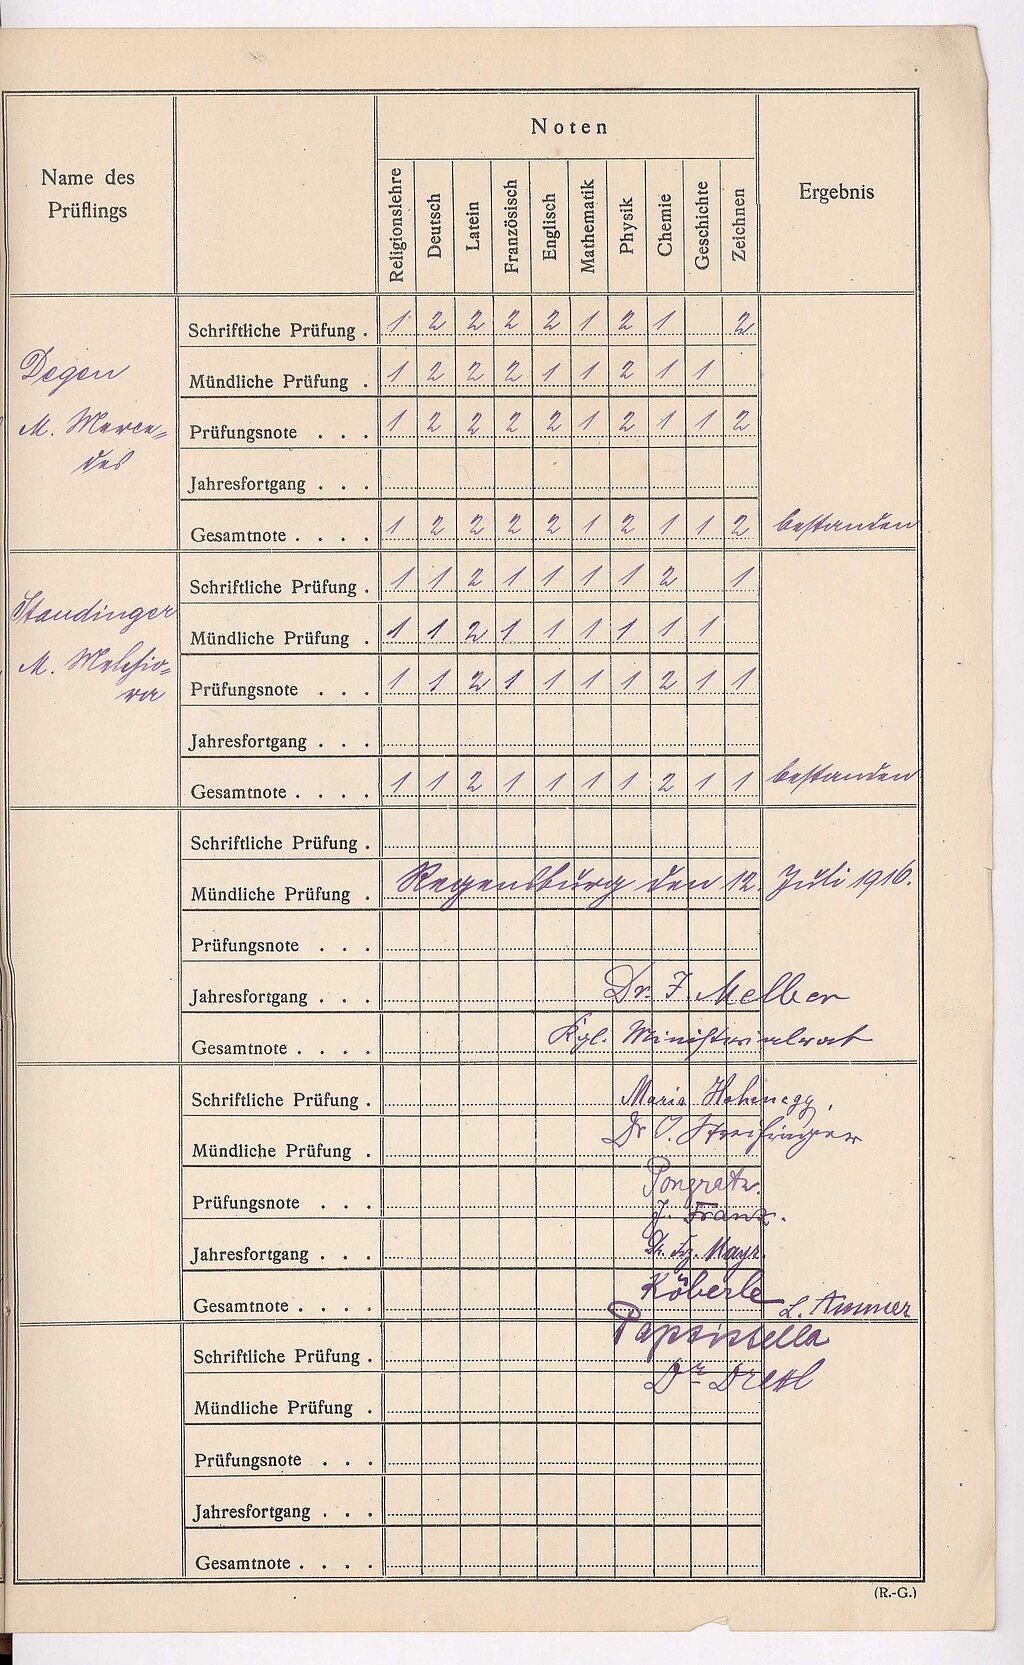 Name des
Prüflings
Noten
Ergebnis
Religionslehre
Deutsch
Latein
Französisch
Englisch
Mathematik
Physik
Chemie
Geschichte
Zeichnen
Degen
M. Merce=
des
Schriftliche Prüfung . 1 2 2 2 2 1 2 1 2
Mündliche Prüfung . 1 2 2 2 1 1 2 1 1
Prüfungsnote . . . 1 2 2 2 2 1 2 1 1 2
Jahresfortgang . . .
Gesamtnote . . . . 1 2 2 2 2 1 2 1 1 2 bestanden
Staudinger
M. Melchio=
ra
Schriftliche Prüfung . 1 1 2 1 1 1 1 2 1
Mündliche Prüfung . 1 1 2 1 1 1 1 1 1
Prüfungsnote . . . 1 1 2 1 1 1 1 2 1 1
Jahresfortgang . . .
Gesamtnote . . . . 1 1 2 1 1 1 1 2 1 1 bestanden
Schriftliche Prüfung .
Mündliche Prüfung . Regensburg den 12. Juli 1916.
Prüfungsnote . . .
Jahresfortgang . . . Dr. J. Melber
Gesamtnote . . . . Kgl. Ministerialrat
Schriftliche Prüfung . Maria Hohenegg.
Mündliche Prüfung . Dr. J. Streifinger
Prüfungsnote . . . Pongratz.
J. Franz.
Jahresfortgang . . . Dr. Frz. Mayr.
Gesamtnote . . . . Köberle L. Ammer
Schriftliche Prüfung .
Mündliche Prüfung .
Prüfungsnote . . .
Jahresfortgang . . .
Gesamtnote . . . .
(R.-G.)